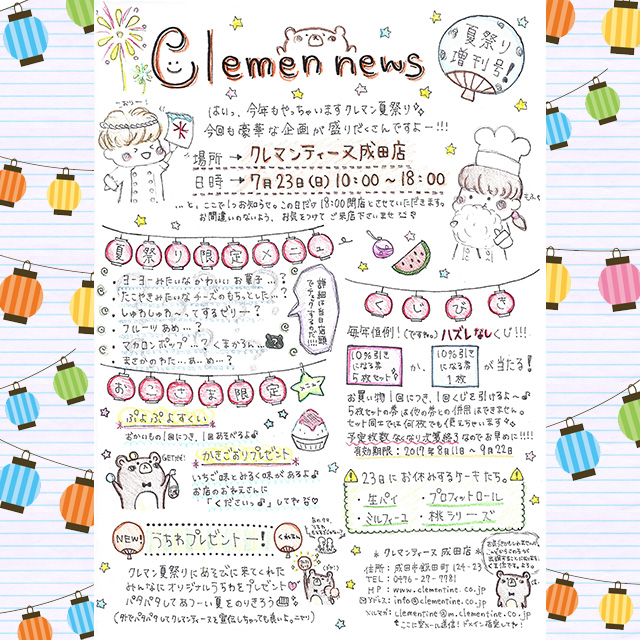 Clemen news
夏祭り
増刊号!
はいっ、今年もやっちゃいますクレマン夏祭り
今回も豪華な企画が盛りだくさんですよー!!!
場所 → クレマンティーヌ成田店
日時 → 7月23日(日)10:00～18:00
...と、ここで1つお知らせ。この日だけ18:00閉店とさせていただきます。
お間違いのないよう、お気をつけてご来店下さいませ
夏祭り限定メニュー
・ヨーヨーみたいなかわいいお菓子...?
・たこやきみたいなチーズのもちっとした...?
・しゅわしゅわ～ってするゼリー...?
・フルーツあめ...?
・マカロンポップ...? くまかろん...
・まさかのわた...あ...め...?
詳細は当日店頭
でチェックするのだ!!!
くじびき
毎年恒例!(ですね。)ハズレなしくじ!!!
10%引き
になる券
5枚セット
か、
10%引き
になる券
1枚
が当たる!
お買い物1回につき、1回くじを引けるよ～♪
5枚セットの券は他の券との併用はできません。
セット同士では何枚でも使えちゃいます
予定枚数なくなり次第終了なのでお早めに!!!!
有効期限:2017年8月1日～9月22日
おこさま限定
ぷよぷよすくい
おかいもの1回につき、1回あそべるよ♪
かきごおりプレゼント
GET だぜ!
いちご味とみるく味があるよ♪
お店のおねえさんに
「くださいっ♪」してネ♡
23日にお休みするケーキたち。
・生パイ
・プロフィットロール
・ミルフィーユ
・桃ラリーズ
NEW!
うちわプレゼントー!
くれまん
クレマン夏祭りにあそびに来てくれた
みんなにオリジナルうちわをプレゼント♡
パタパタしてあつーい夏をのりきろう
(外でパタパタしてクレマンティーヌを宣伝しちゃっても良い。こっこり)
* クレマンティーヌ 成田店 *
住所:成田市飯田町124-23
TEL:0476-27-7781
HP:www.clementine.co.jp
info@clementine.co.jp
メルマガ:clementine@m.clementine.co.jp
↑ここに空メール送信!ドメイン指定してネ!